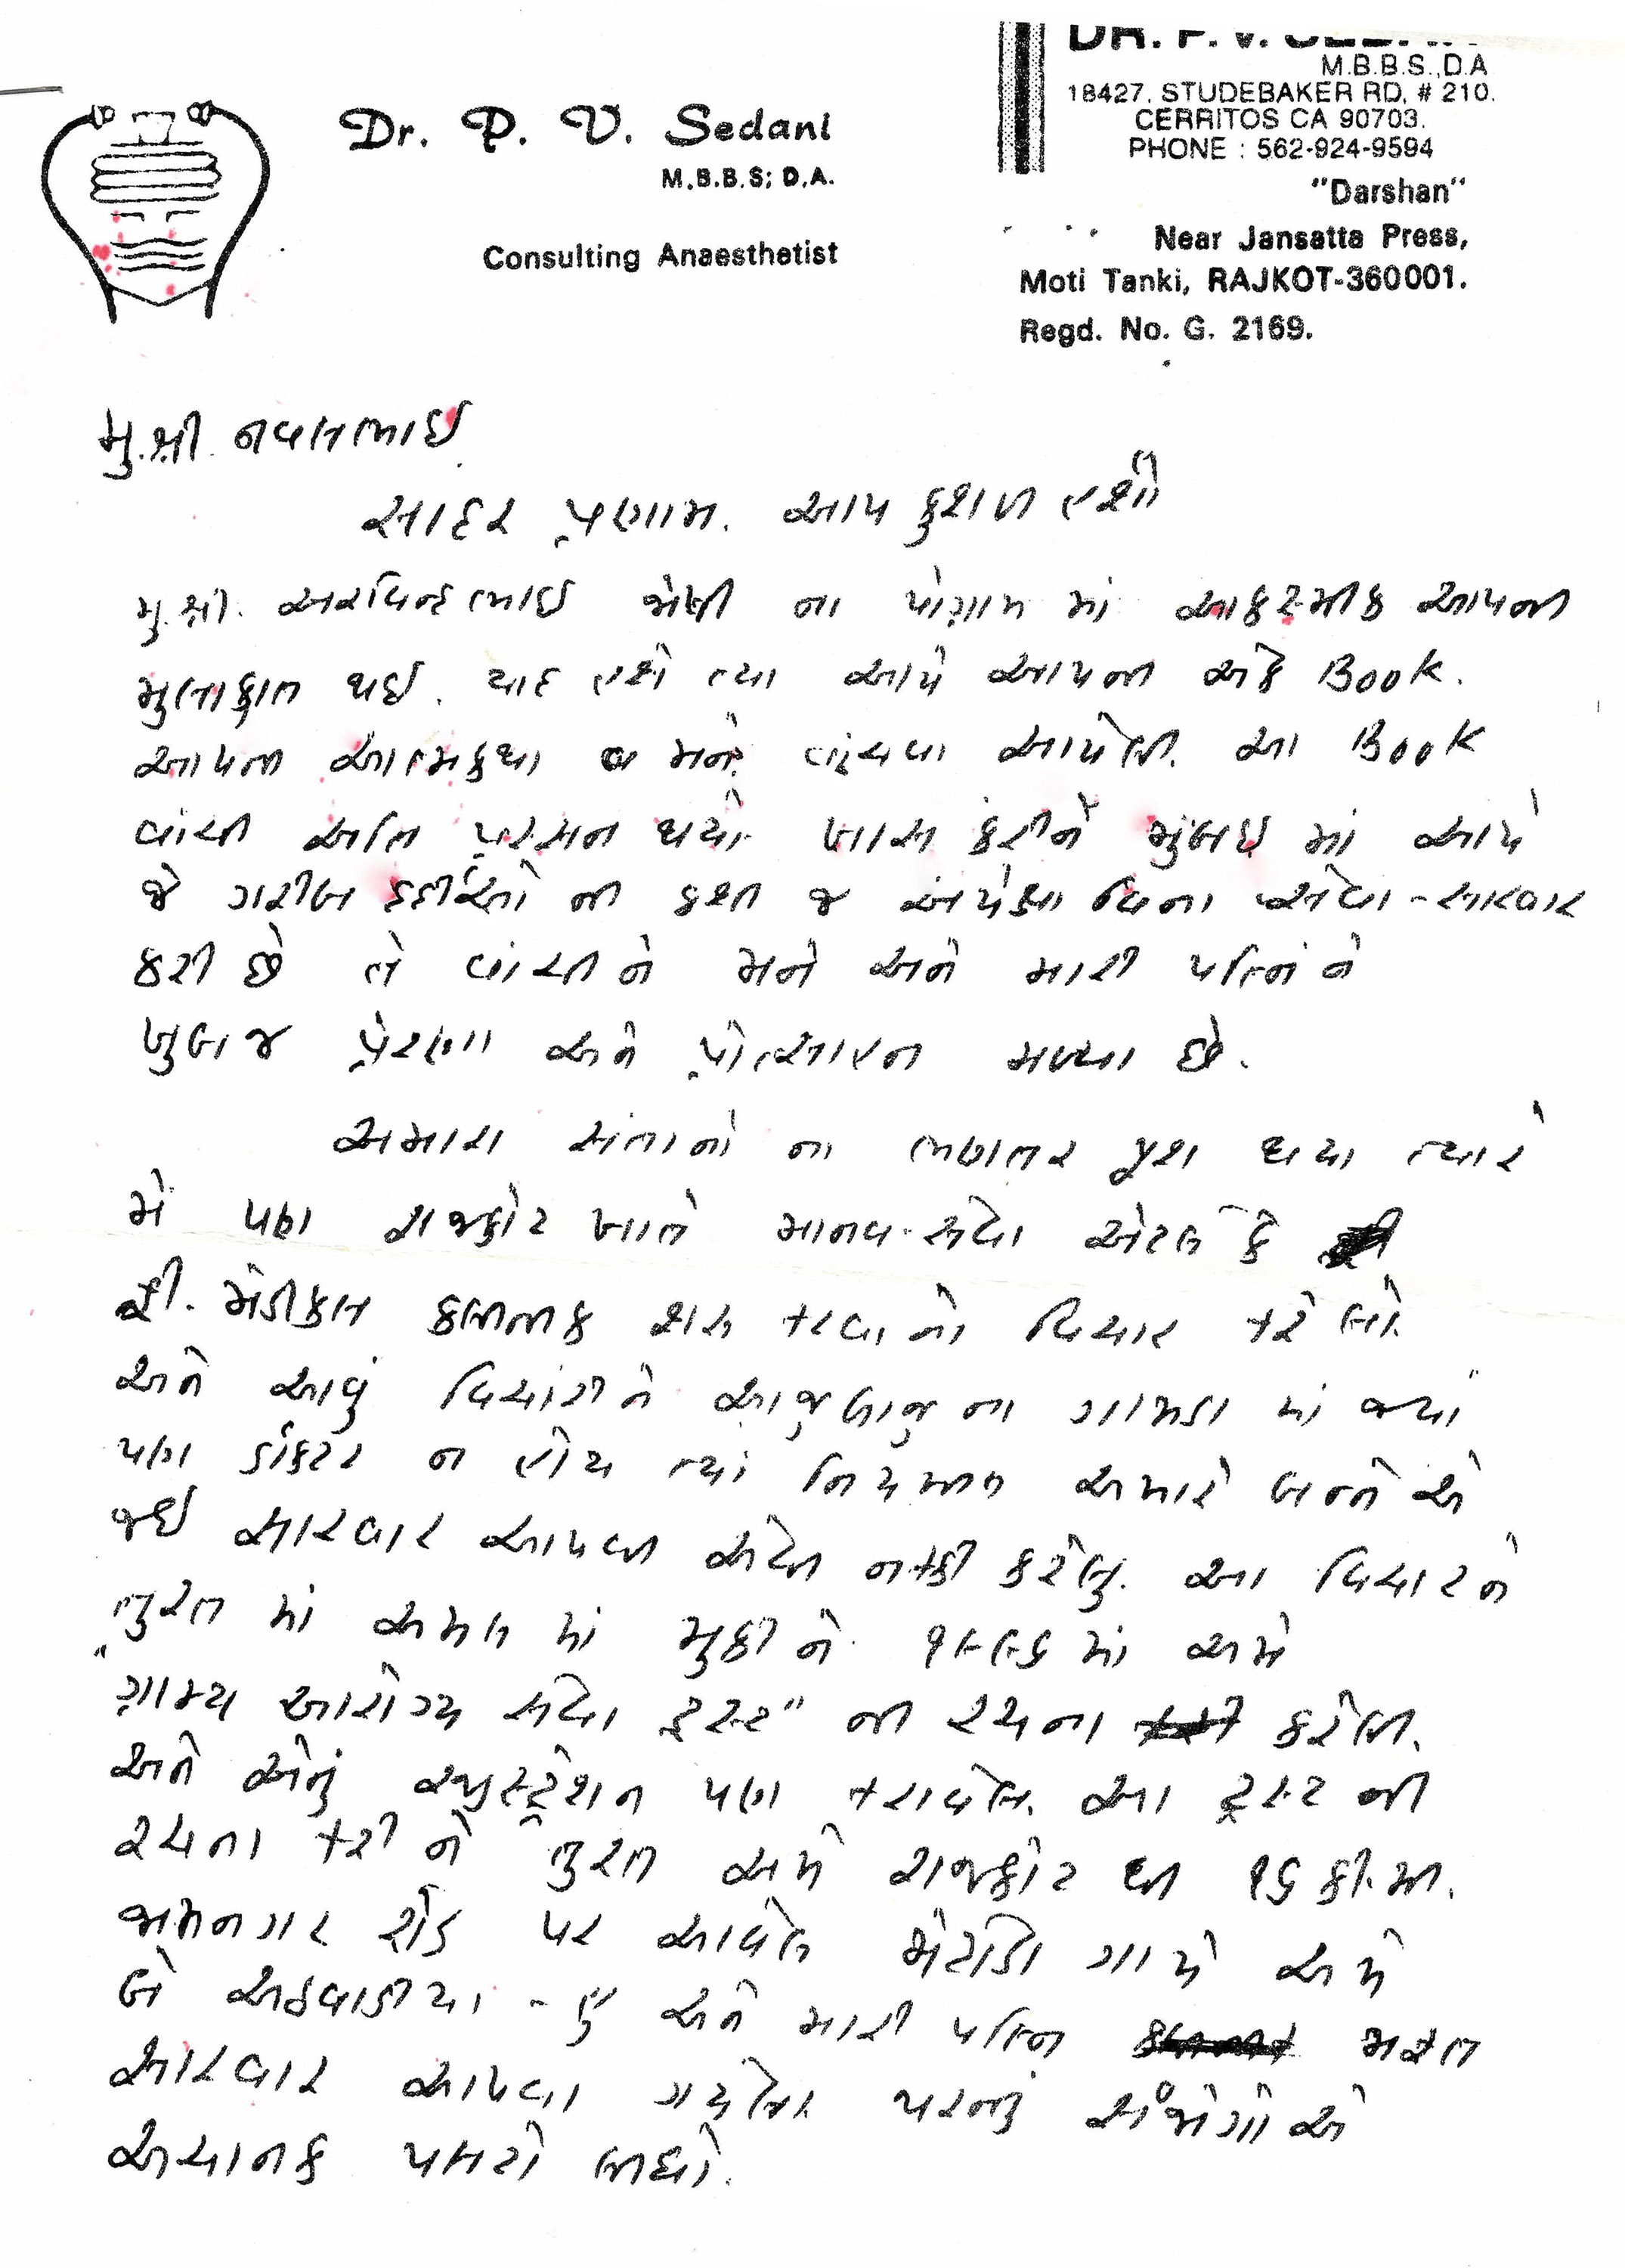 DR. P. V. SEDANI
M.B.B.S.,D.A
18427, STUDEBAKER RD, # 210.
CERRITOS CA 90703.
PHONE : 562-924-9594
Dr. P. V. Sedani
M.B.B.S; D.A.
Consulting Anaesthetist
"Darshan"
Near Jansatta Press,
Moti Tanki, RAJKOT-360001.
Regd. No. G. 2169.
મુ.શ્રી. નવલભાઈ
સાદર પ્રણામ. આપ કુશળ હશો
મુ.શ્રી. અરવિન્દભાઈ જોષી ના પોગ્રામ માં આકસ્મીક આપની
મુલાકાત થઈ. યાદ હશે ત્યા આપે આપની એક Book.
આપની આત્મકથા મને વાંચવા આપેલી. આ Book
વાંચી અતિ પ્રસન થયો ખાસ કરીને મુંબઈ માં આપે
જે ગરીબ દર્દીઓ ની કશી જ અપેક્ષા વિના સેવા-સારવાર
કરી છે તે વાંચીને મને અને મારી પત્નિ ને
ખુબજ પ્રેરણા અને પ્રોત્સાહન મળ્યા છે.
અમારા સંતાનો ના ભણતર પુરા થયા ત્યારે
મે પણ રાજકોટ ખાતે માનવ-સેવા એટલે કે
ફ્રી. મેડીકલ કલીનીક શરૂ કરવાનો વિચાર કરેલો.
અને આવું વિચારીને આજુબાજુ ના ગામડા માં જ્યાં
પણ ડોકટર ન હોય ત્યાં નિયમીત અમારે બન્ને એ
જઈ સારવાર આપવી એવુ નક્કી કરેલુ. આ વિચારને
તુરત માં અમલ માં મુકીને ૧૯૯૬ માં અમે
"ગ્રામ્ય આરોગ્ય સેવા ટ્રસ્ટ" ની રચના કરેલી.
અને એનું રજીસ્ટ્રેશન પણ કરાવેલ. આ ટ્રસ્ટ ની
રચના કરી ને તુરત અમે રાજકોટ થી ૧૬ કી.મી.
જામનગર રોડ પર આવેલ મેટોડા ગામે અમે
બે અઠવાડીયા - હું અને મારી પત્નિ મફત
સારવાર આપવા ગયેલા. પરન્તું સંજોગોએ
અચાનક પલટો લીધો.